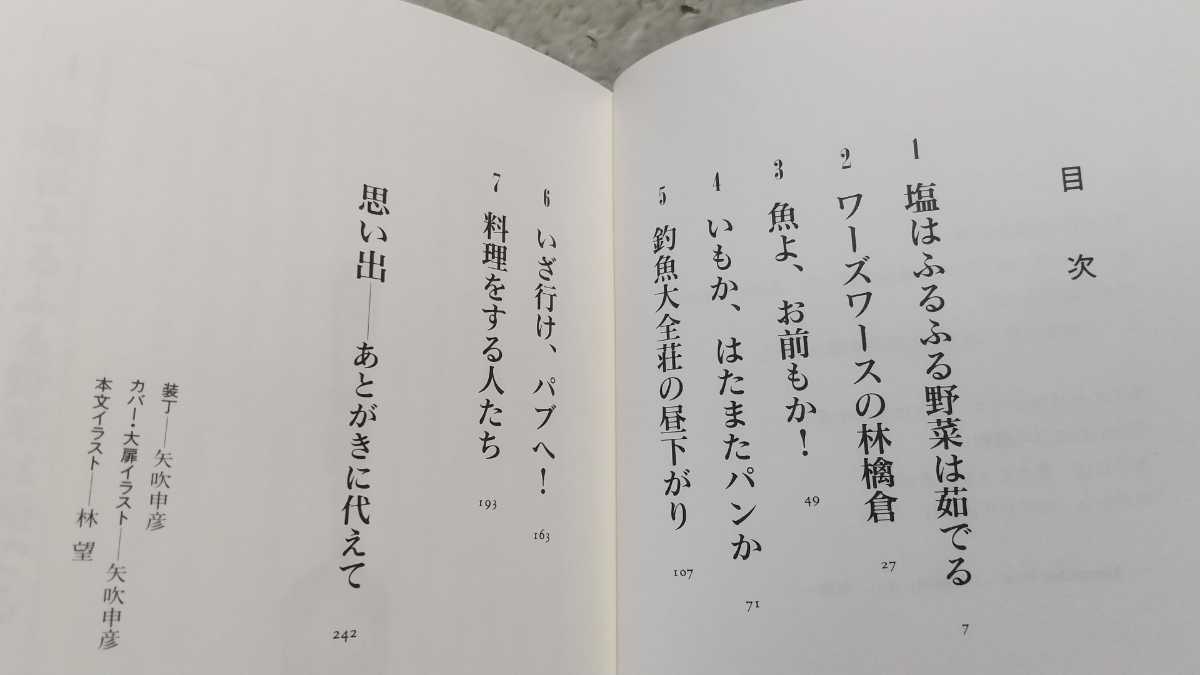 目次
1 塩はふるふる野菜は茹でる 7
2 ワーズワースの林檎倉 27
3 魚よ、お前もか! 49
4 いもか、はたまたパンか 71
5 釣魚大全荘の昼下がり 107
6 いざ行け、パブへ! 163
7 料理をする人たち 193
思い出――あとがきに代えて 242
装丁――矢吹申彦
カバー・大扉イラスト――矢吹申彦
本文イラスト――林 望